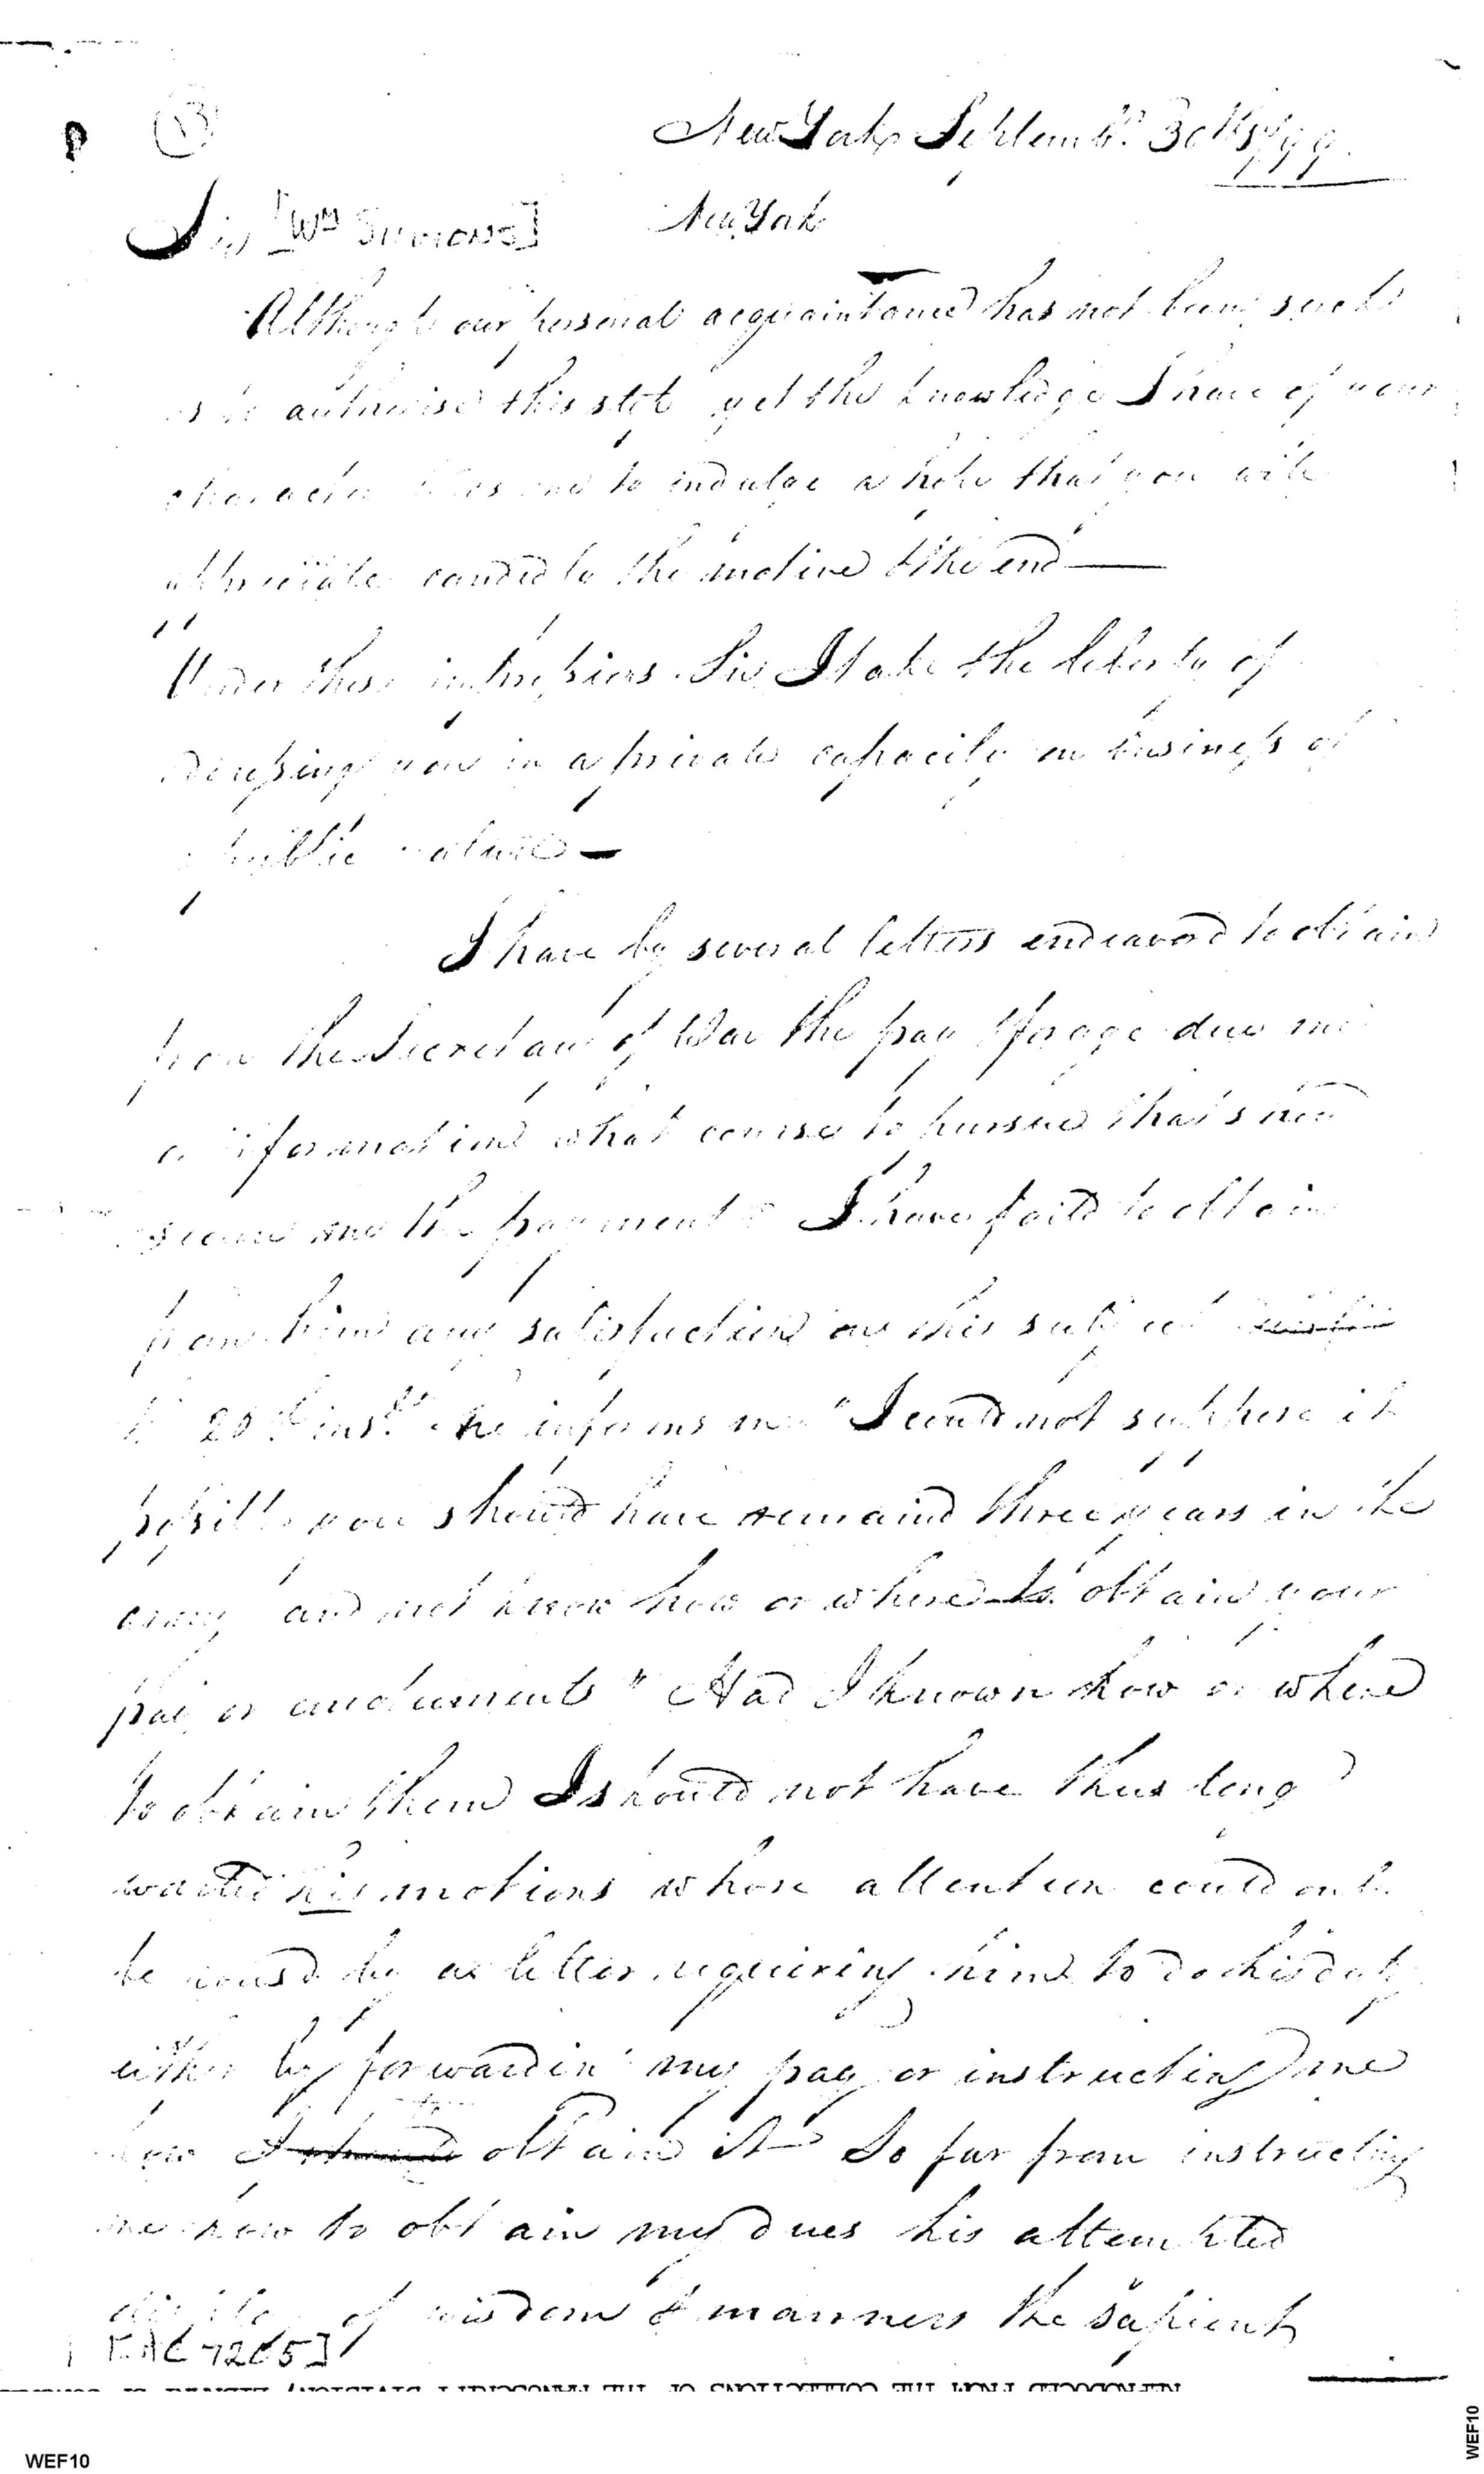 (13)
New York Septemb.r 30th 1799.
Sir [Wm Simmons] New York
Although our personal acquaintance has not been such
as to authorise this step yet the knowledge I have of your
character me to indulge a hope that you will
appreciate candidly the motive & the end —
Under these impressions Sir I take the liberty of
addressing you in a private capacity on business of
public nature —
I have by several letters endeavord to obtain
from the Secretary of War the pay & forage due me
or information what course to pursue that should
secure me the payment I have faild to obtain
from him any satisfaction on this subject
20th inst. he informs me "I could not suppose it
possible you should have remaind three years in the
army and not know how or where to obtain your
pay or emoluments" Had I known how or where
to obtain them I should not have thus long
waited his motions whose attention could only
be rousd by a letter requiring him to do his duty
either by forwardin my pay or instructing me
how I should obtain it — So far from instructing
me how to obtain my dues his attempted
display of wisdom & manners the sapient
[FAC 7205]
REPRODUCED FROM THE COLLECTIONS OF THE MANUSCRIPT DIVISION, LIBRARY OF
WEF10
WEF10